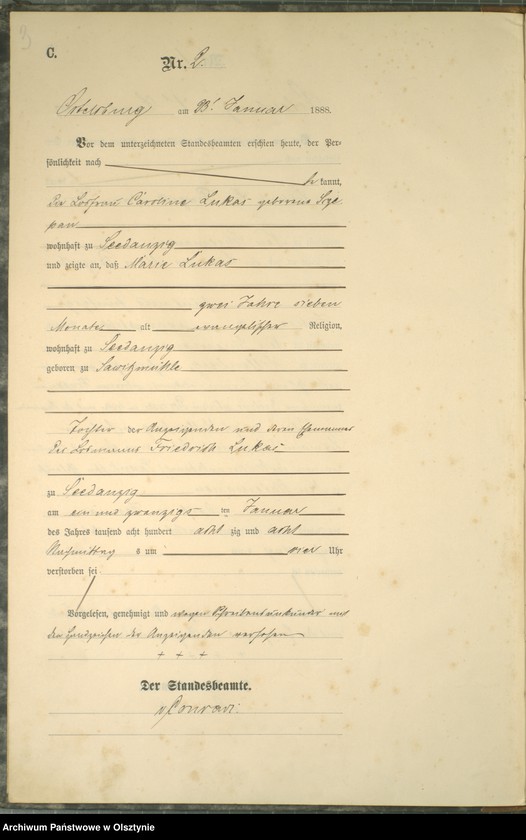 C.
Nr. 2.
Ortelsburg am 23t Januar 1888.
Vor dem unterzeichneten Standesbeamten erschien heute, der Per-
sönlichkeit nach
be kannt,
die Losfrau Caroline Lukas geborene Sze
pan
wohnhaft zu Seedanzig
und zeigte an, daß Marie Lukas
zwei Jahre sieben
Monate alt evangelischer Religion,
wohnhaft zu Seedanzig
geboren zu Sawitzmühle
Tochter der Anzeigenden und deren Ehemannes
des Losmanns Friedrich Lukas
zu Seedanzig
am ein und zwanzigs ten Januar
des Jahres tausend acht hundert acht zig und acht
Nachmittag s um vier Uhr
verstorben sei
Vorgelesen, genehmigt und wegen Schreibensunkunde mit
den Handzeichen der Anzeigenden versehen
+ + +
Der Standesbeamte.
v Conradi.
Archiwum Państwowe w Olsztynie